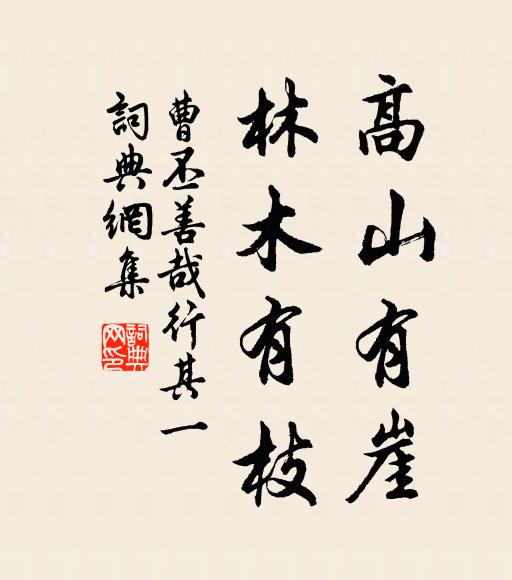 高山有崖
林木有枝
曹丕善哉行其一
詞典網集
詞典网印